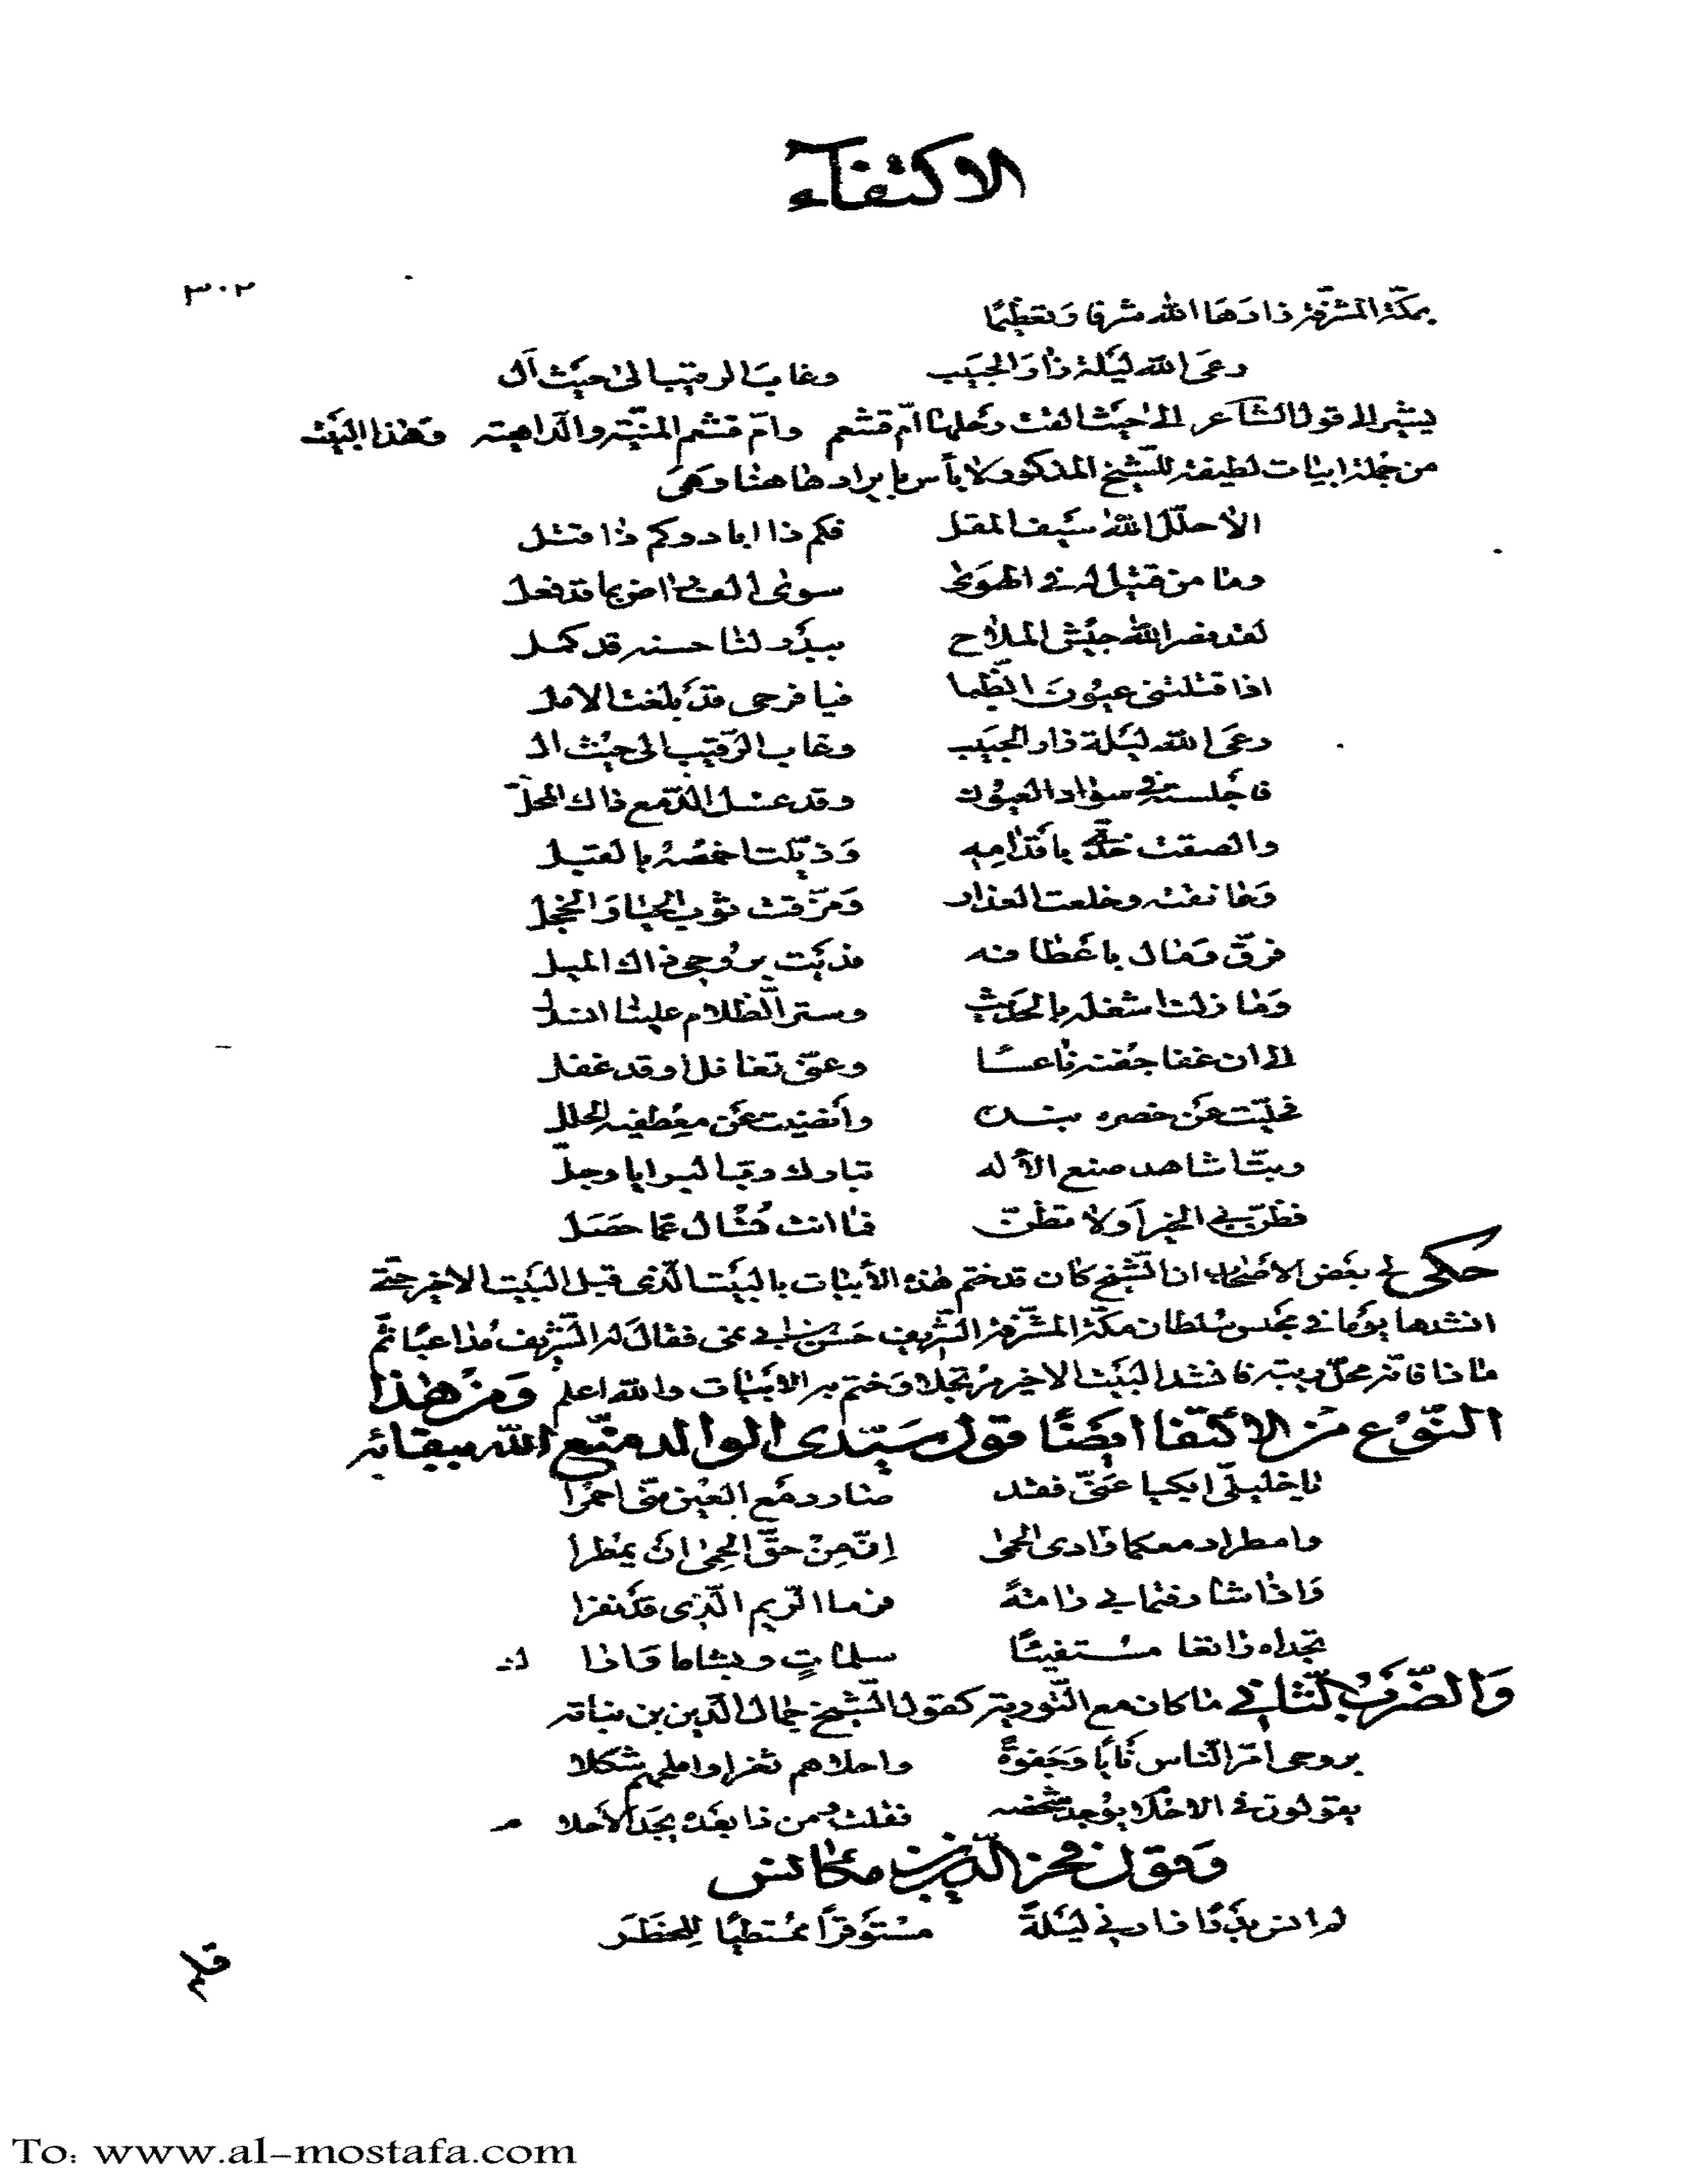 الاكتفاء
٣٠٢
بمكة المشرفة زادها الله شرفا وتعظيما
رعى الله ليلة زار الحبيب وغاب الرقيب الى حيث ال
يشير الى قول الشاعر الى حيث القت رحلها ام قشعم وام قشعم المنية والداهية وهذا البيت
من جملة ابيات لطيفة للشيخ المذكور ولا باس بايرادها هنا وهى
الا حلل الله سيف المقل فكم ذا اباد وكم ذا قتل
وما من قتيل له في الهوى سوى الف راض بما قد فعل
لقد نصر الله جيش الملاح ببدر لنا حسنه قد كمل
اذا قتلتنى عيون الظبا فيا فرحى قد بلغت الامل
رعى الله ليلة زار الحبيب وغاب الرقيب الى حيث ال
فاجلسته في سواد العيون وقد غسل الدمع ذاك المحل
والصقت خدي باقدامه وذيلت اخمصه بالقبل
وعانقته وخلعت العذار ومزقت ثوب الحيا والخجل
فرق ومال باعطافه فديت بروحى ذاك الميل
وما زلت اشغله بالحديث وستر الظلام علينا انسدل
الى ان غفا جفنه ناعسا وعنى تغافل او قد غفل
فحليت عن خصره بنده وانضيت عن معطفيه الحلل
وبت اشاهد صنع الاله تبارك رب البرايا وجل
فظن بي الخير او لا تظن فما انت تسال عما حصل
حكى لى بعض الاصحاب ان الشيخ كان قد ختم هذه الأبيات بالبيت الذى قبل البيت الاخير حتى
انشدها يوما في مجلس سلطان مكة المشرفة الشريف حسن بن ابى نمى فقال له الشريف مداعبا ثم
ماذا فانه محل ريبة فانشد البيت الاخير مرتجلا وختم به الابيات والله اعلم ومن هذا
النوع من الاكتفا ايضا قول سيدى الوالد متع الله ببقائه
يا خليلي ابكيا عنى فقد صار دمع العين منى احمرا
وامطرا دمعكما وادى الحمى ان من حق الحمى ان يمطرا
واذا شارفتما في رامة فزما الريم الذى قد نفرا
تجداه راتعا مستفيئا سلمات وبشاما واذا
والضرب الثانى ما كان مع التورية كقول الشيخ جمال الدين بن نباته
بروحى امر الناس نايا وجفوة واحلاهم ثغرا واملحهم شكلا
يقولون في الاحلام يوجد شخصه فقلت ومن ذا بعده يجد الأحلا م
وقول فخر الدين بن مكانس
لم انس بدرا زار في ليلة مستوفزا ممتطيا للخطر
فلم
To: www.al-mostafa.com